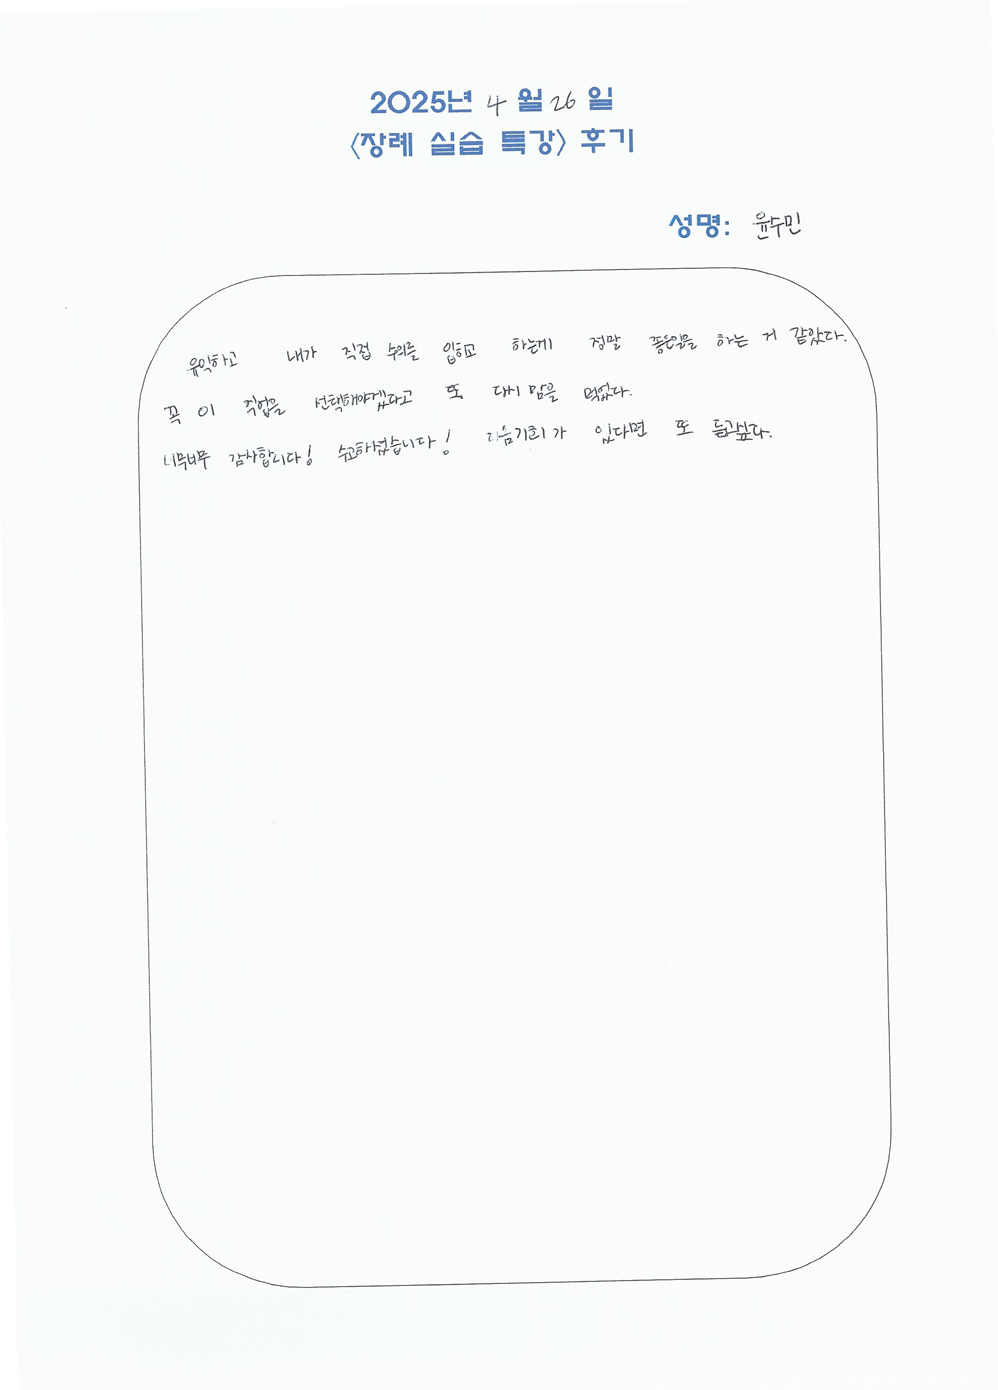 2025년 4월 26일
<장례 실습 특강> 후기
성명: 윤수민
유익하고 내가 직접 수의를 입히고 하는게 정말 좋은일을 하는 거 같았다.
꼭 이 직업을 선택해야겠다고 또 다시 맘을 먹었다.
너무너무 감사합니다! 수고하셨습니다! 다음기회가 있다면 또 듣고싶다.